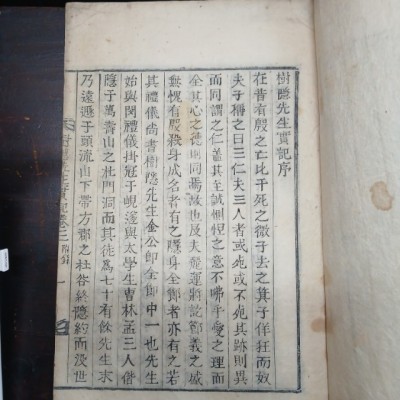 樹隱先生實記序
在昔有殷之亡比干死之微子去之箕子佯狂而奴
夫子稱之曰三仁夫三人者或死或不死其跡則異
而同謂之仁何其至誠惻怛之意不咈乎愛之理而
全其心之德則同焉故也及夫麗運將訖節義之盛
無愧有殷殺身成名者有之隱身全節者亦有之若
其禮儀尚書樹隱先生金公卽全節中一也先生
始與閔禮儀掛冠于峴邊與太學生曺林孟三人偕
隱于萬壽山之杜門洞而其徒爲七十有餘先生求
乃遠遯于頭流山下帶方郡之杜谷終隱約而沒世
先生實記卷之二 附錄 一